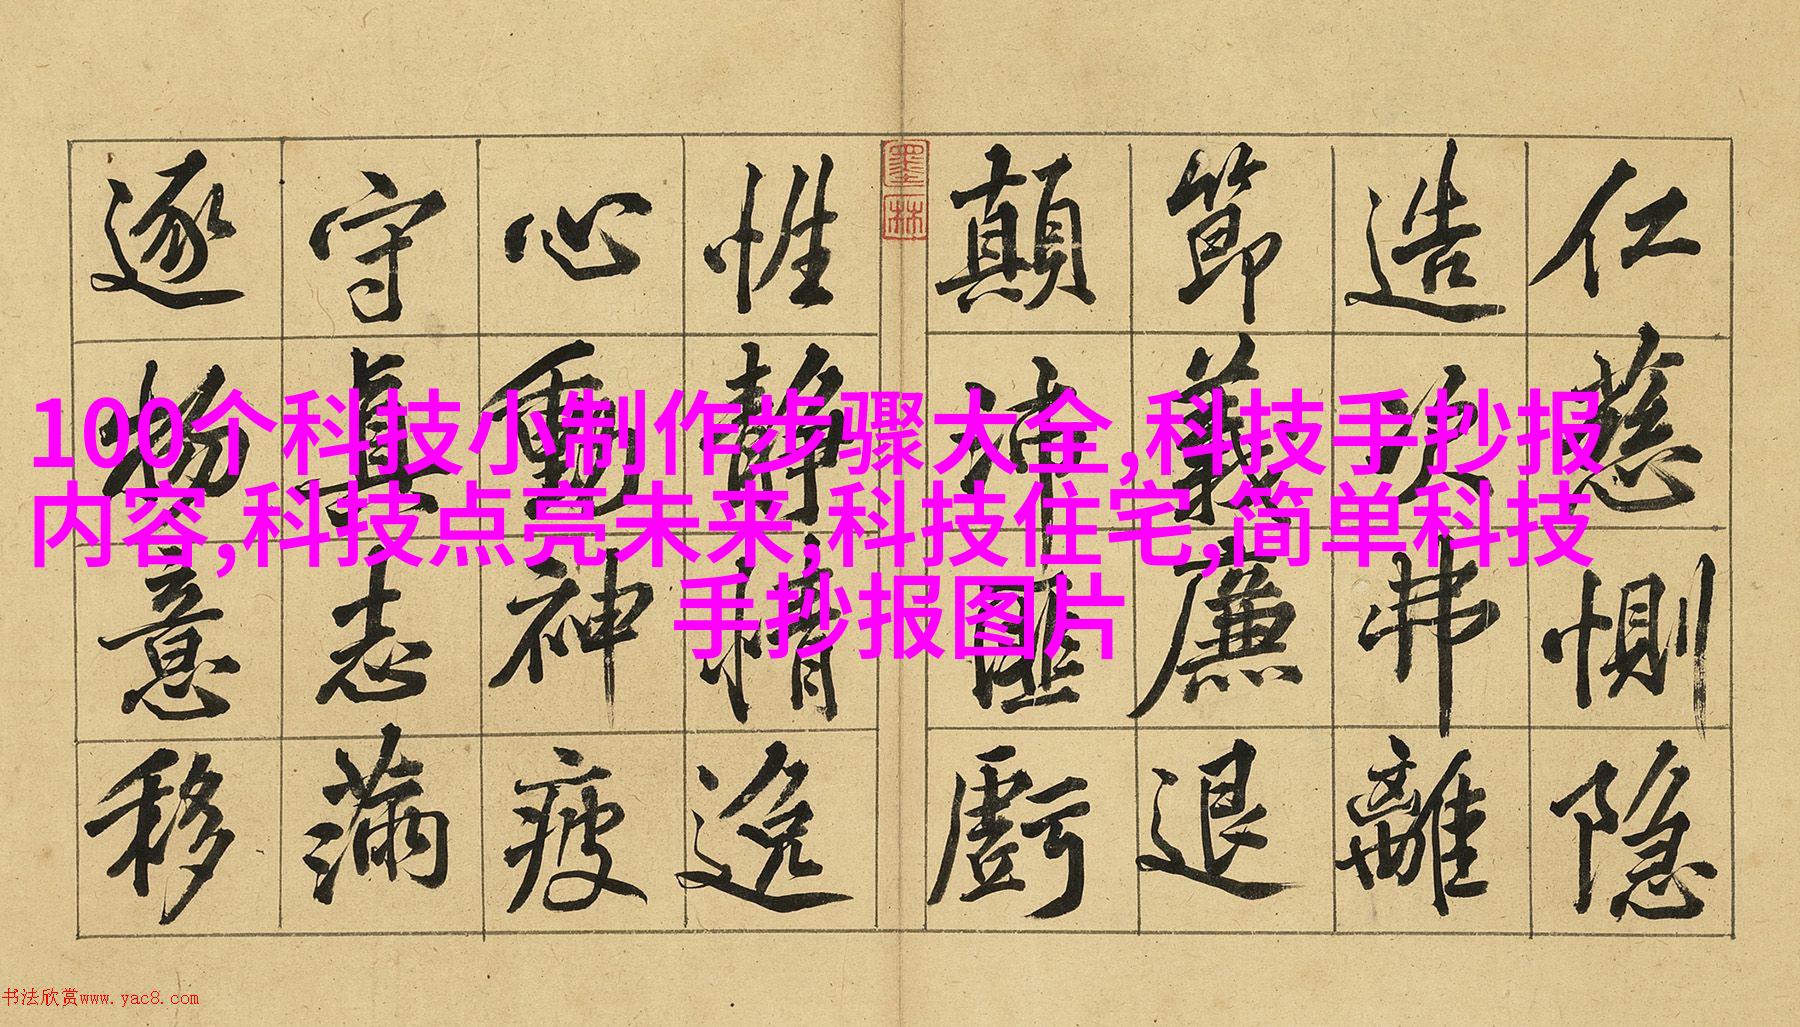 仁慈惻隐
造次弗離
節義廉退
顛沛匪虧
墨林
性静情逸
心動神疲
守真志滿
逐物意移
100个科技小制作步骤大全,科技手抄报
内容,科技点亮未来,科技住宅,简单科技
手抄报图片
书法欣赏www.yac8.com